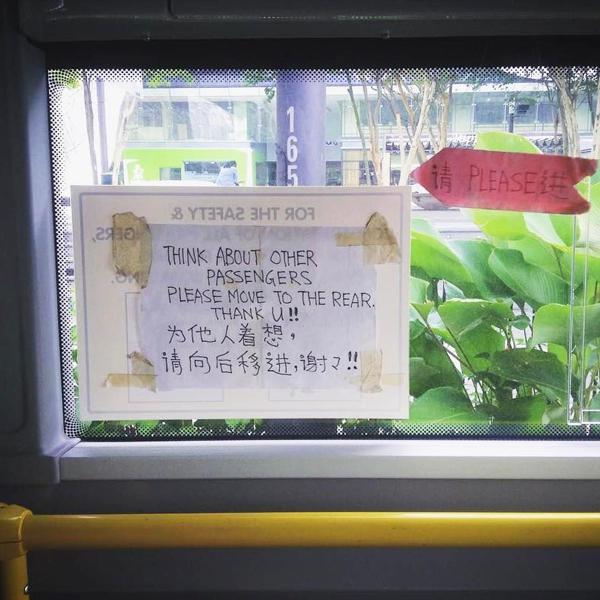 165
请 PLEASE 进
FOR THE SAFETY &
THINK ABOUT OTHER
PASSENGERS
PLEASE MOVE TO THE REAR.
THANK U!!
为他人着想，
请向后移进,谢々!!